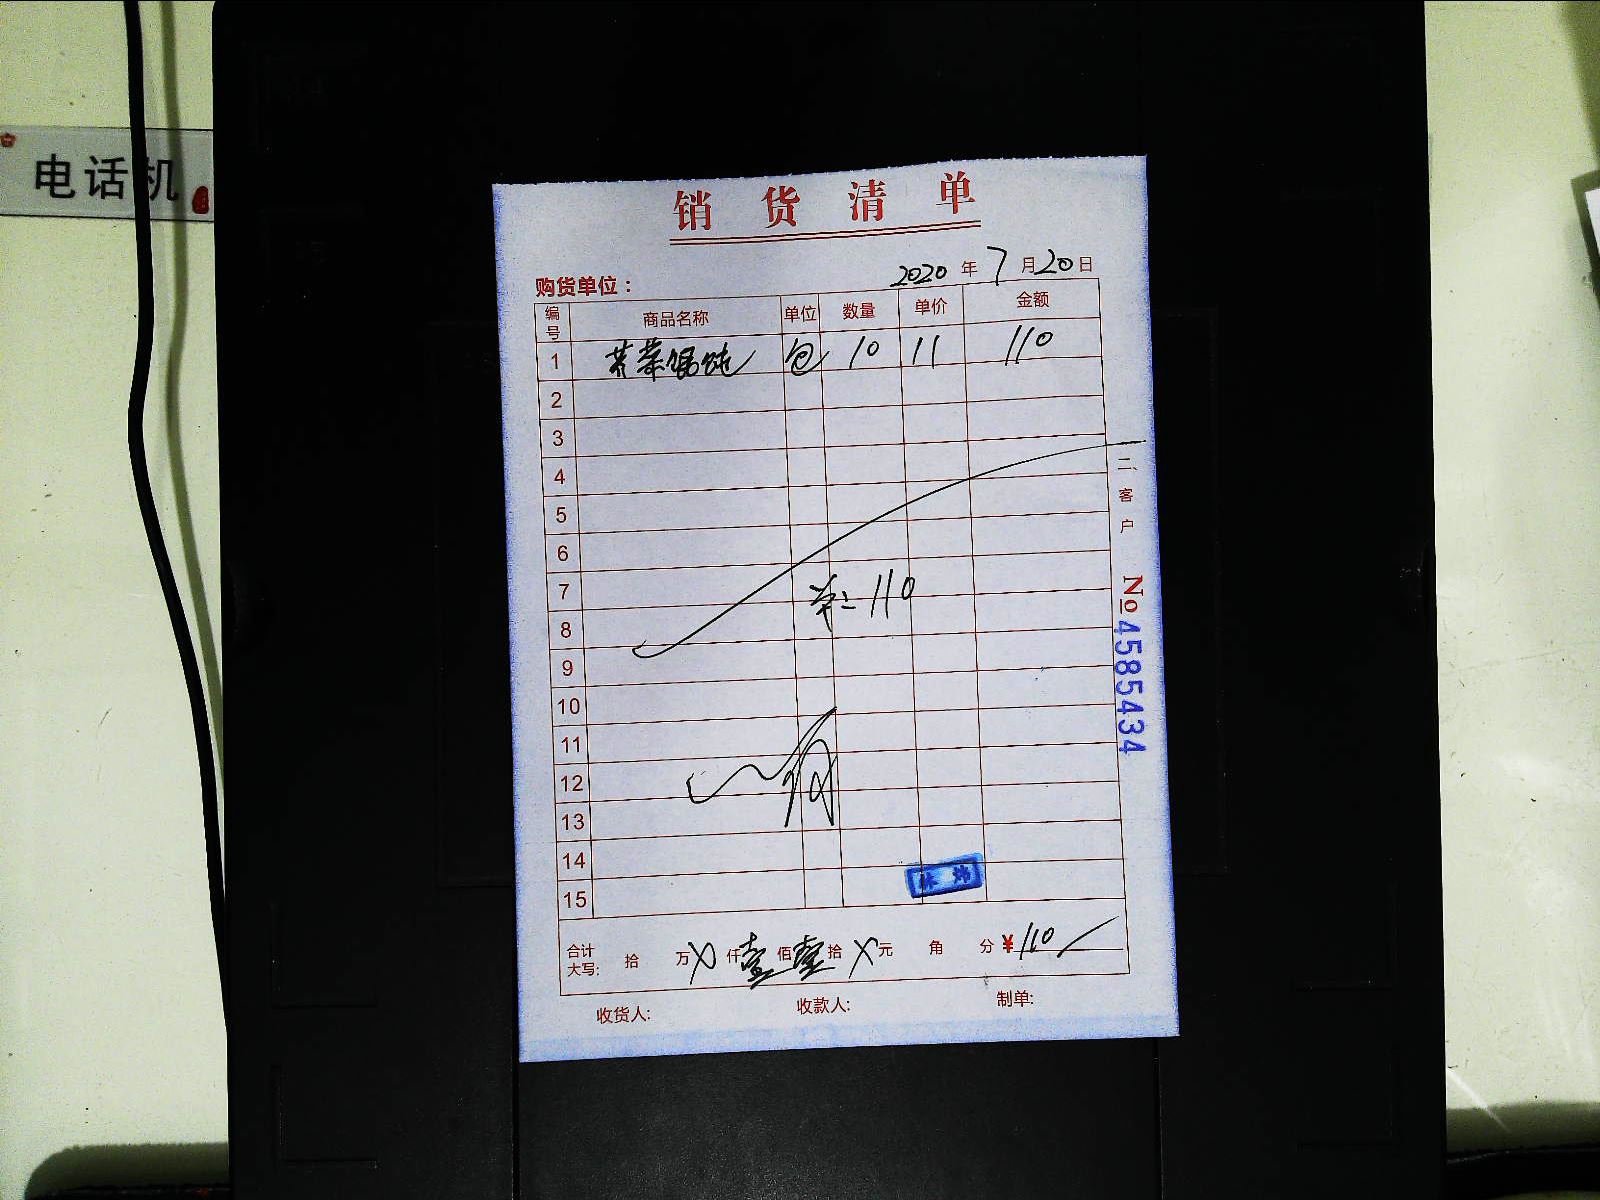 电话机
销货清单
购货单位： 2020 年 7 月 20 日
编号 商品名称 单位 数量 单价 金额
1 荠菜馄饨 包 10 11 110
2
3
4
二、客户
5
6
7
单二 110
8
9
No 4585434
10
11
12
13
14
15
合计大写： 拾 万 X 仟 壹 佰 壹 拾 X 元 角 分 ¥ 110
收货人: 收款人: 制单: